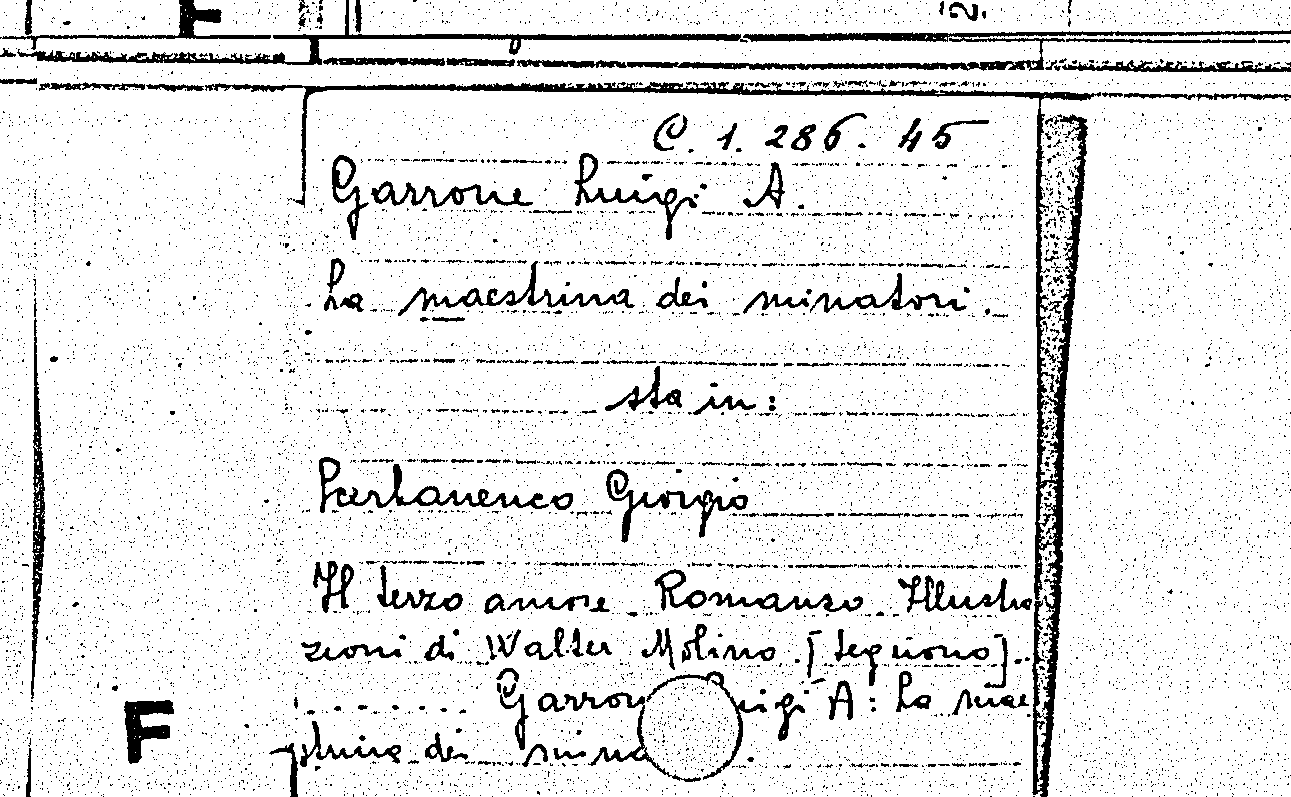 C. 1. 286. 45
Garrone Luigi A.
La maestrina dei minatori.
sta in:
Giorgio
Il terzo amore. Romanzo. Illustra
zioni di Walter Molino. [Seguono]..
........ Garron uigi A: La mae
strina dei mina .
F